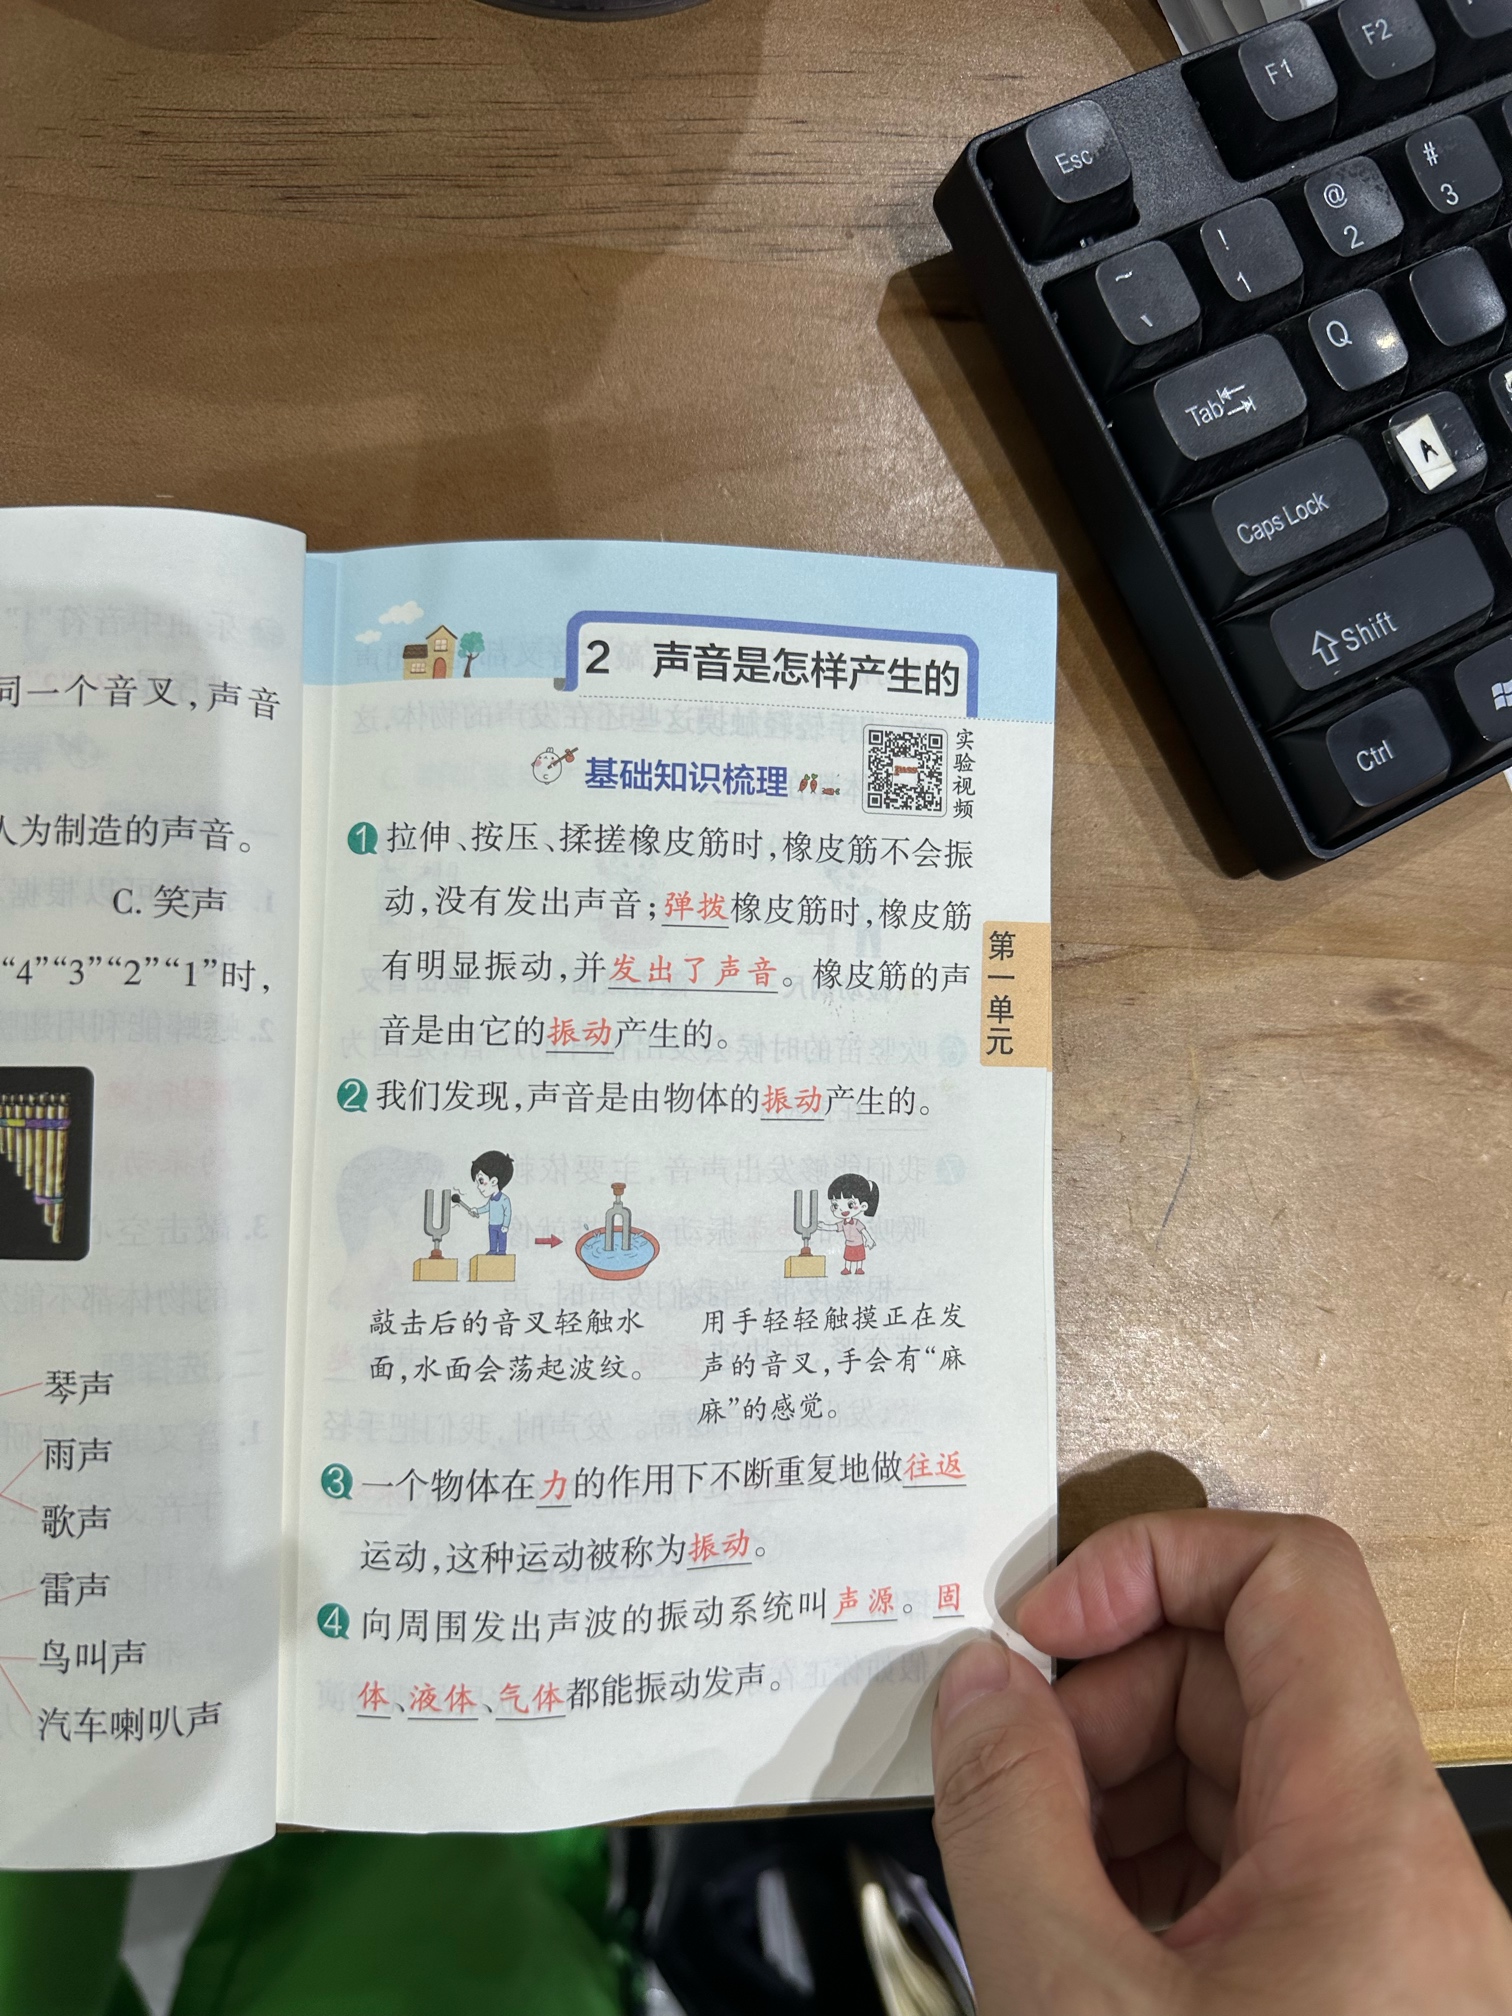 同一个音叉,声音
人为制造的声音。
C. 笑声
“4”“3”“2”“1”时,
琴声
雨声
歌声
雷声
鸟叫声
汽车喇叭声
2 声音是怎样产生的
基础知识梳理
实验视频
1 拉伸、按压、揉搓橡皮筋时,橡皮筋不会振
动,没有发出声音;弹拨橡皮筋时,橡皮筋
有明显振动,并发出了声音。橡皮筋的声
音是由它的振动产生的。
2 我们发现,声音是由物体的振动产生的。
敲击后的音叉轻触水
面,水面会荡起波纹。
用手轻轻触摸正在发
声的音叉,手会有“麻
麻”的感觉。
3 一个物体在力的作用下不断重复地做往返
运动,这种运动被称为振动。
4 向周围发出声波的振动系统叫声源。固
体、液体、气体都能振动发声。
第一单元
Esc
F1
F2
~
、
!
1
@
2
#
3
Tab
Q
Caps Lock
A
Shift
Ctrl